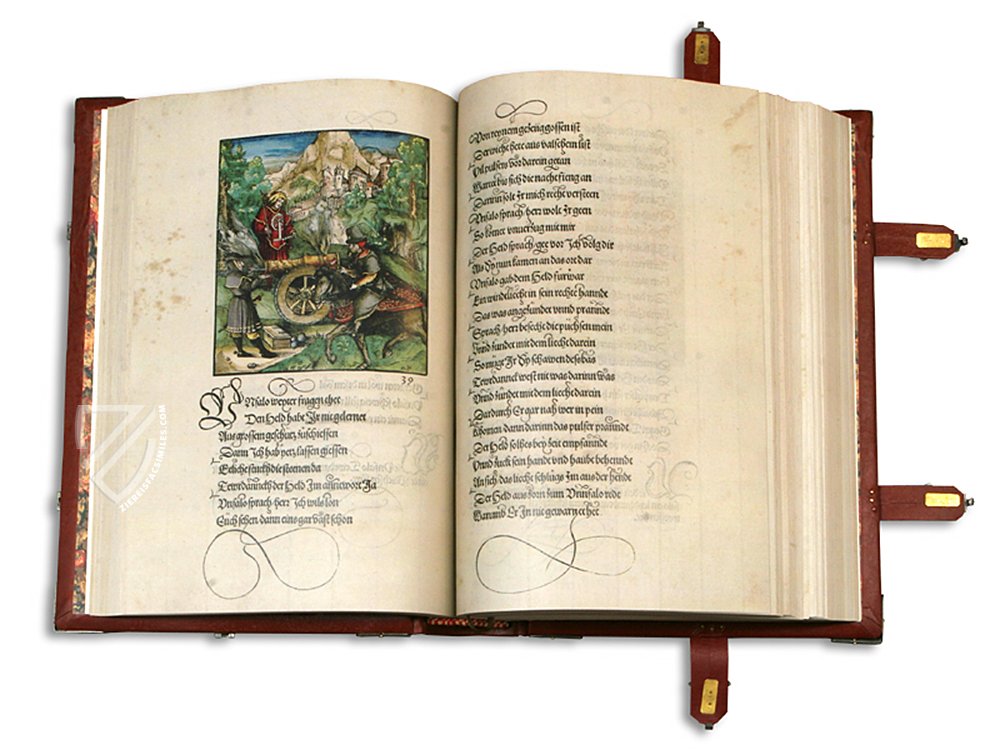 39
VNfalo weyter fragen thet
Den Held habt Ir nie gelernet
Aus grossem geschutz zuschiessen
Dann Ich hab yetz lassen giessen
Etliche stuckh die steenen da
Tewrdannckh der Held Im anntwort Ja
Vnfalo sprach herr Ich wils lon
Euch sehen dann eins gar vast schon
ZIEREISFACSIMILES.COM
Von reynem gezeug gossen ist
Der wicht hett aus valschem list
Vil pulfers vor darein getan
Wartet bis sich die nacht fieng an
Darinn solt Ir mich recht versteen
Vnfalo sprach herr wolt Ir geen
So komet vnuerzug mit mir
Der Held sprach gee vor Ich volg dir
Als Sy nun kamen an das ort dar
Vnfalo gab dem Held fürwar
Ein windeliecht in sein rechte hannde
Das was angezündet vnnd prannde
Sprach herr besecht die püchsen mein
Vnnd zündet mit dem liecht darein
So mügt Ir Sy schawen desbas
Tewrdannck west nit was darinn was
Vnnd zündet mit dem liecht darein
Dardurch Er gar nah wer in pein
Komen dann darinn das pulfer prannde
Der Held solhes bey zeit empfannde
Vnnd zuckt sein hannde vnd haubt behennde
An sich das liecht schlug Es Im aus der hende
Der Held aus zorn zum Vnnfalo redt
Warumb Er In nit gewarnet het